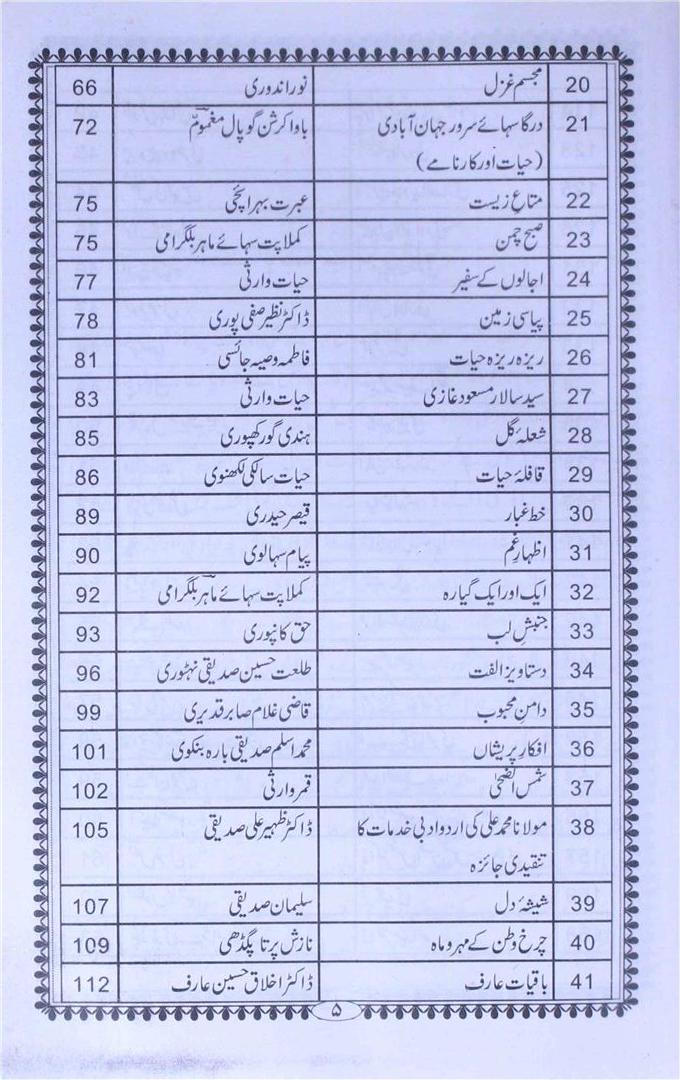 20 مجسم غزل نور اندوری 66
21 درگا سہائے سرور جہان آبادی باوا کرشن گوپال مغمومؔ 72
(حیات اور کارنامے)
22 متاعِ زیست عبرت بہرائچی 75
23 صبح چمن کملا پت سہائے ماہر بلگرامی 75
24 اجالوں کے سفیر حیات وارثی 77
25 پیاسی زمین ڈاکٹر نظیر صفی پوری 78
26 ریزہ ریزہ حیات فاطمہ وصیہ جائسی 81
27 سید سالار مسعود غازی حیات وارثی 83
28 شعلۂ گل ہندی گورکھپوری 85
29 قافلۂ حیات حیات سالکی لکھنوی 86
30 خط غبار قیصر حیدری 89
31 اظہارِ غم پیام سہالوی 90
32 ایک اور ایک گیارہ کملا پت سہائے ماہرؔ بلگرامی 92
33 جنبشِ لب حق کانپوری 93
34 دستاویز الفت طلعت حسین صدیقی نہٹوری 96
35 دامنِ محبوب قاضی غلام صابر قدیری 99
36 افکارِ پریشاں محمد اسلم صدیقی بارہ بنکوی 101
37 شمس الضحیٰ قمر وارثی 102
38 مولانا محمد علی کی اردو ادبی خدمات کا ڈاکٹر ظہیر علی صدیقی 105
تنقیدی جائزہ
39 شیشۂ دل سلیمان صدیقی 107
40 چرخ وطن کے مہر و ماہ نازش پرتاپگڈھی 109
41 باقیات عارف ڈاکٹر اخلاق حسین عارف 112
۵